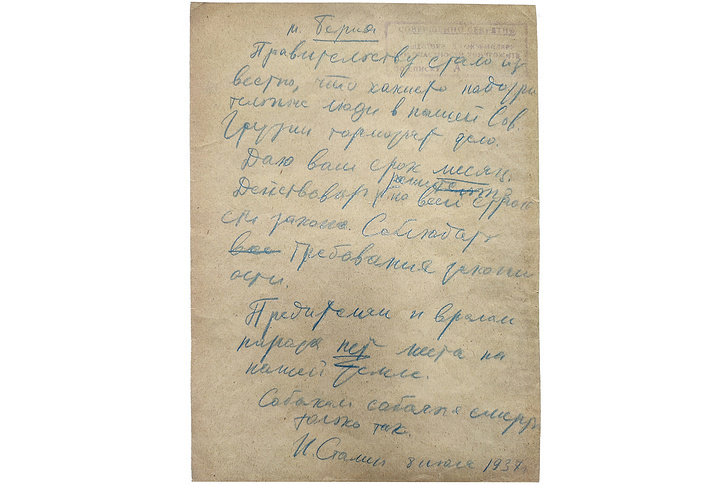 т. Берия
СОВЕРШЕННО СЕКРЕТНО
Правительству стало из
вестно, что какие то подозри
тельные люди в нашей Сов.
Грузии тормозят дело.
Даю вам срок месяц.
Действовать по всей строго
сти закона. Соблюдать
все требования законн
ости.
Вредителям и врагам
народа нет места на
нашей земле.
Собакам собачья смерть
только так.
И. Сталин 8 июля 1937